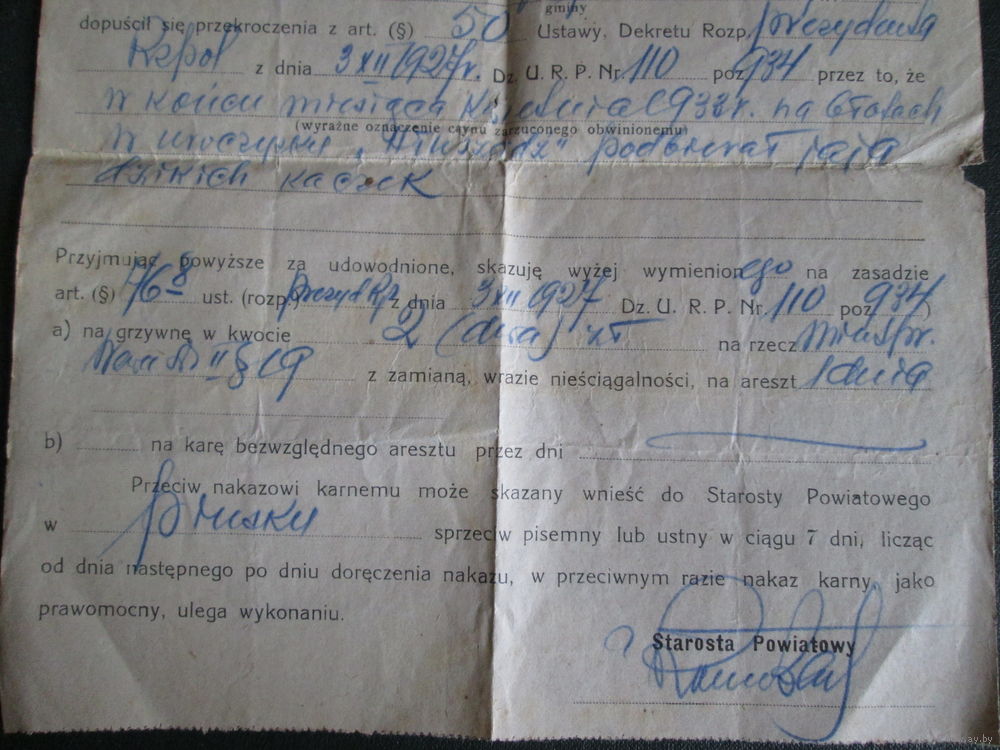 gminy
dopuścił się przekroczenia z art. (§) 50 Ustawy, Dekretu Rozp. prezydenta
Rzpol z dnia 3 XII 1927 r. Dz. U. R. P. Nr. 110 poz 934 przez to, że
w końcu miesiąca kwietnia 1932 r. na błotach
(wyraźne oznaczenie czynu zarzuconego obwinionemu)
w uroczysku podbierał jaja
dzikich kaczek
Przyjmując powyższe za udowodnione, skazuję wyżej wymienionego na zasadzie
art. (§) 76 8 ust. (rozp.) prezyd Rp z dnia 3 XII 1927 Dz. U. R. P. Nr. 110 poz 934)
a) na grzywnę w kwocie 2 (dwa) zł na rzecz
II § 19 z zamianą, wrazie nieściągalności, na areszt 1 dnia
b) na karę bezwzględnego aresztu przez dni
Przeciw nakazowi karnemu może skazany wnieść do Starosty Powiatowego
w Pińsku sprzeciw pisemny lub ustny w ciągu 7 dni, licząc
od dnia następnego po dniu doręczenia nakazu, w przeciwnym razie nakaz karny, jako
prawomocny, ulega wykonaniu.
Starosta Powiatowy
av.by